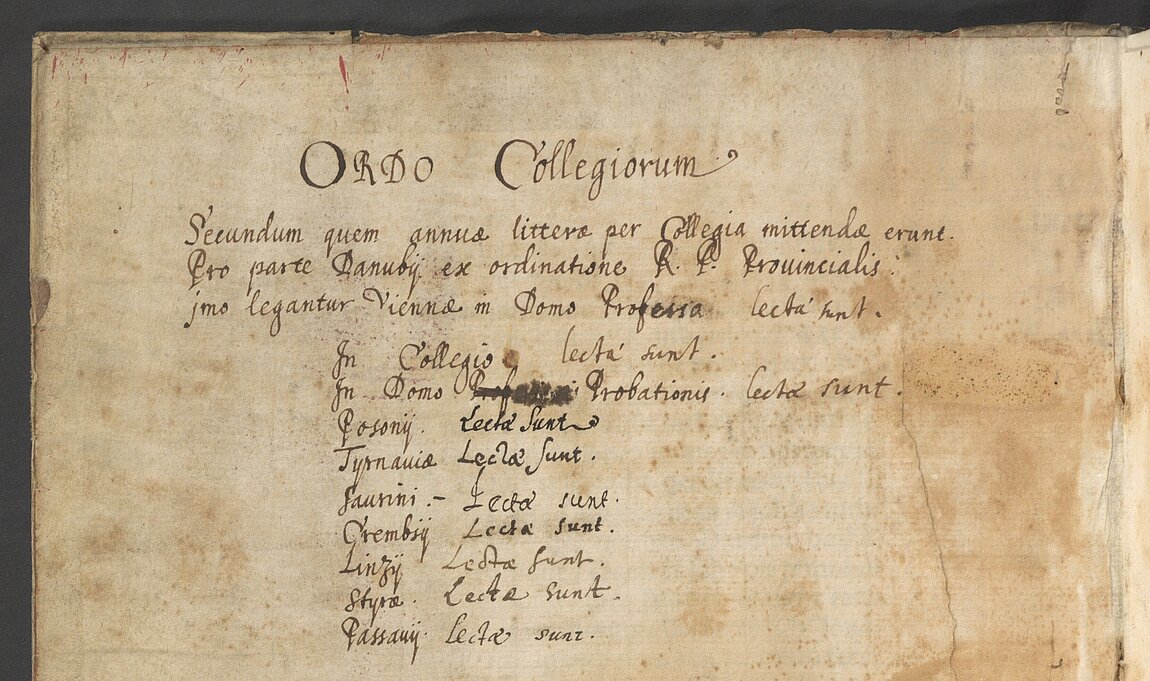 ORDO Collegiorum
Secundum quem annuæ litteræ per Collegia mittendæ erunt.
Pro parte Danubij ex ordinatione R. P. Prouincialis.
jmo legantur Viennæ in Domo Professa lectá sunt.
In Collegio lectá sunt.
In Domo Probationis. lectæ sunt.
Posonij. Lectæ sunt
Tyrnauiæ Lectæ sunt.
Jaurini. - Lectæ sunt.
Crembsij Lectæ sunt.
Linzij Lectæ sunt.
Styræ. Lectæ sunt.
Passauij. Lectæ sunt.